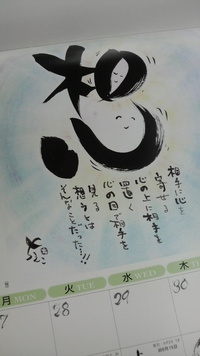 想
相手に心を
寄せる
心の上に相手を
置く
心の目で相手を
見る
想うとは
そんなことだった…!!
月 MON
火 TUE
水 WED
木
7
28
29
30